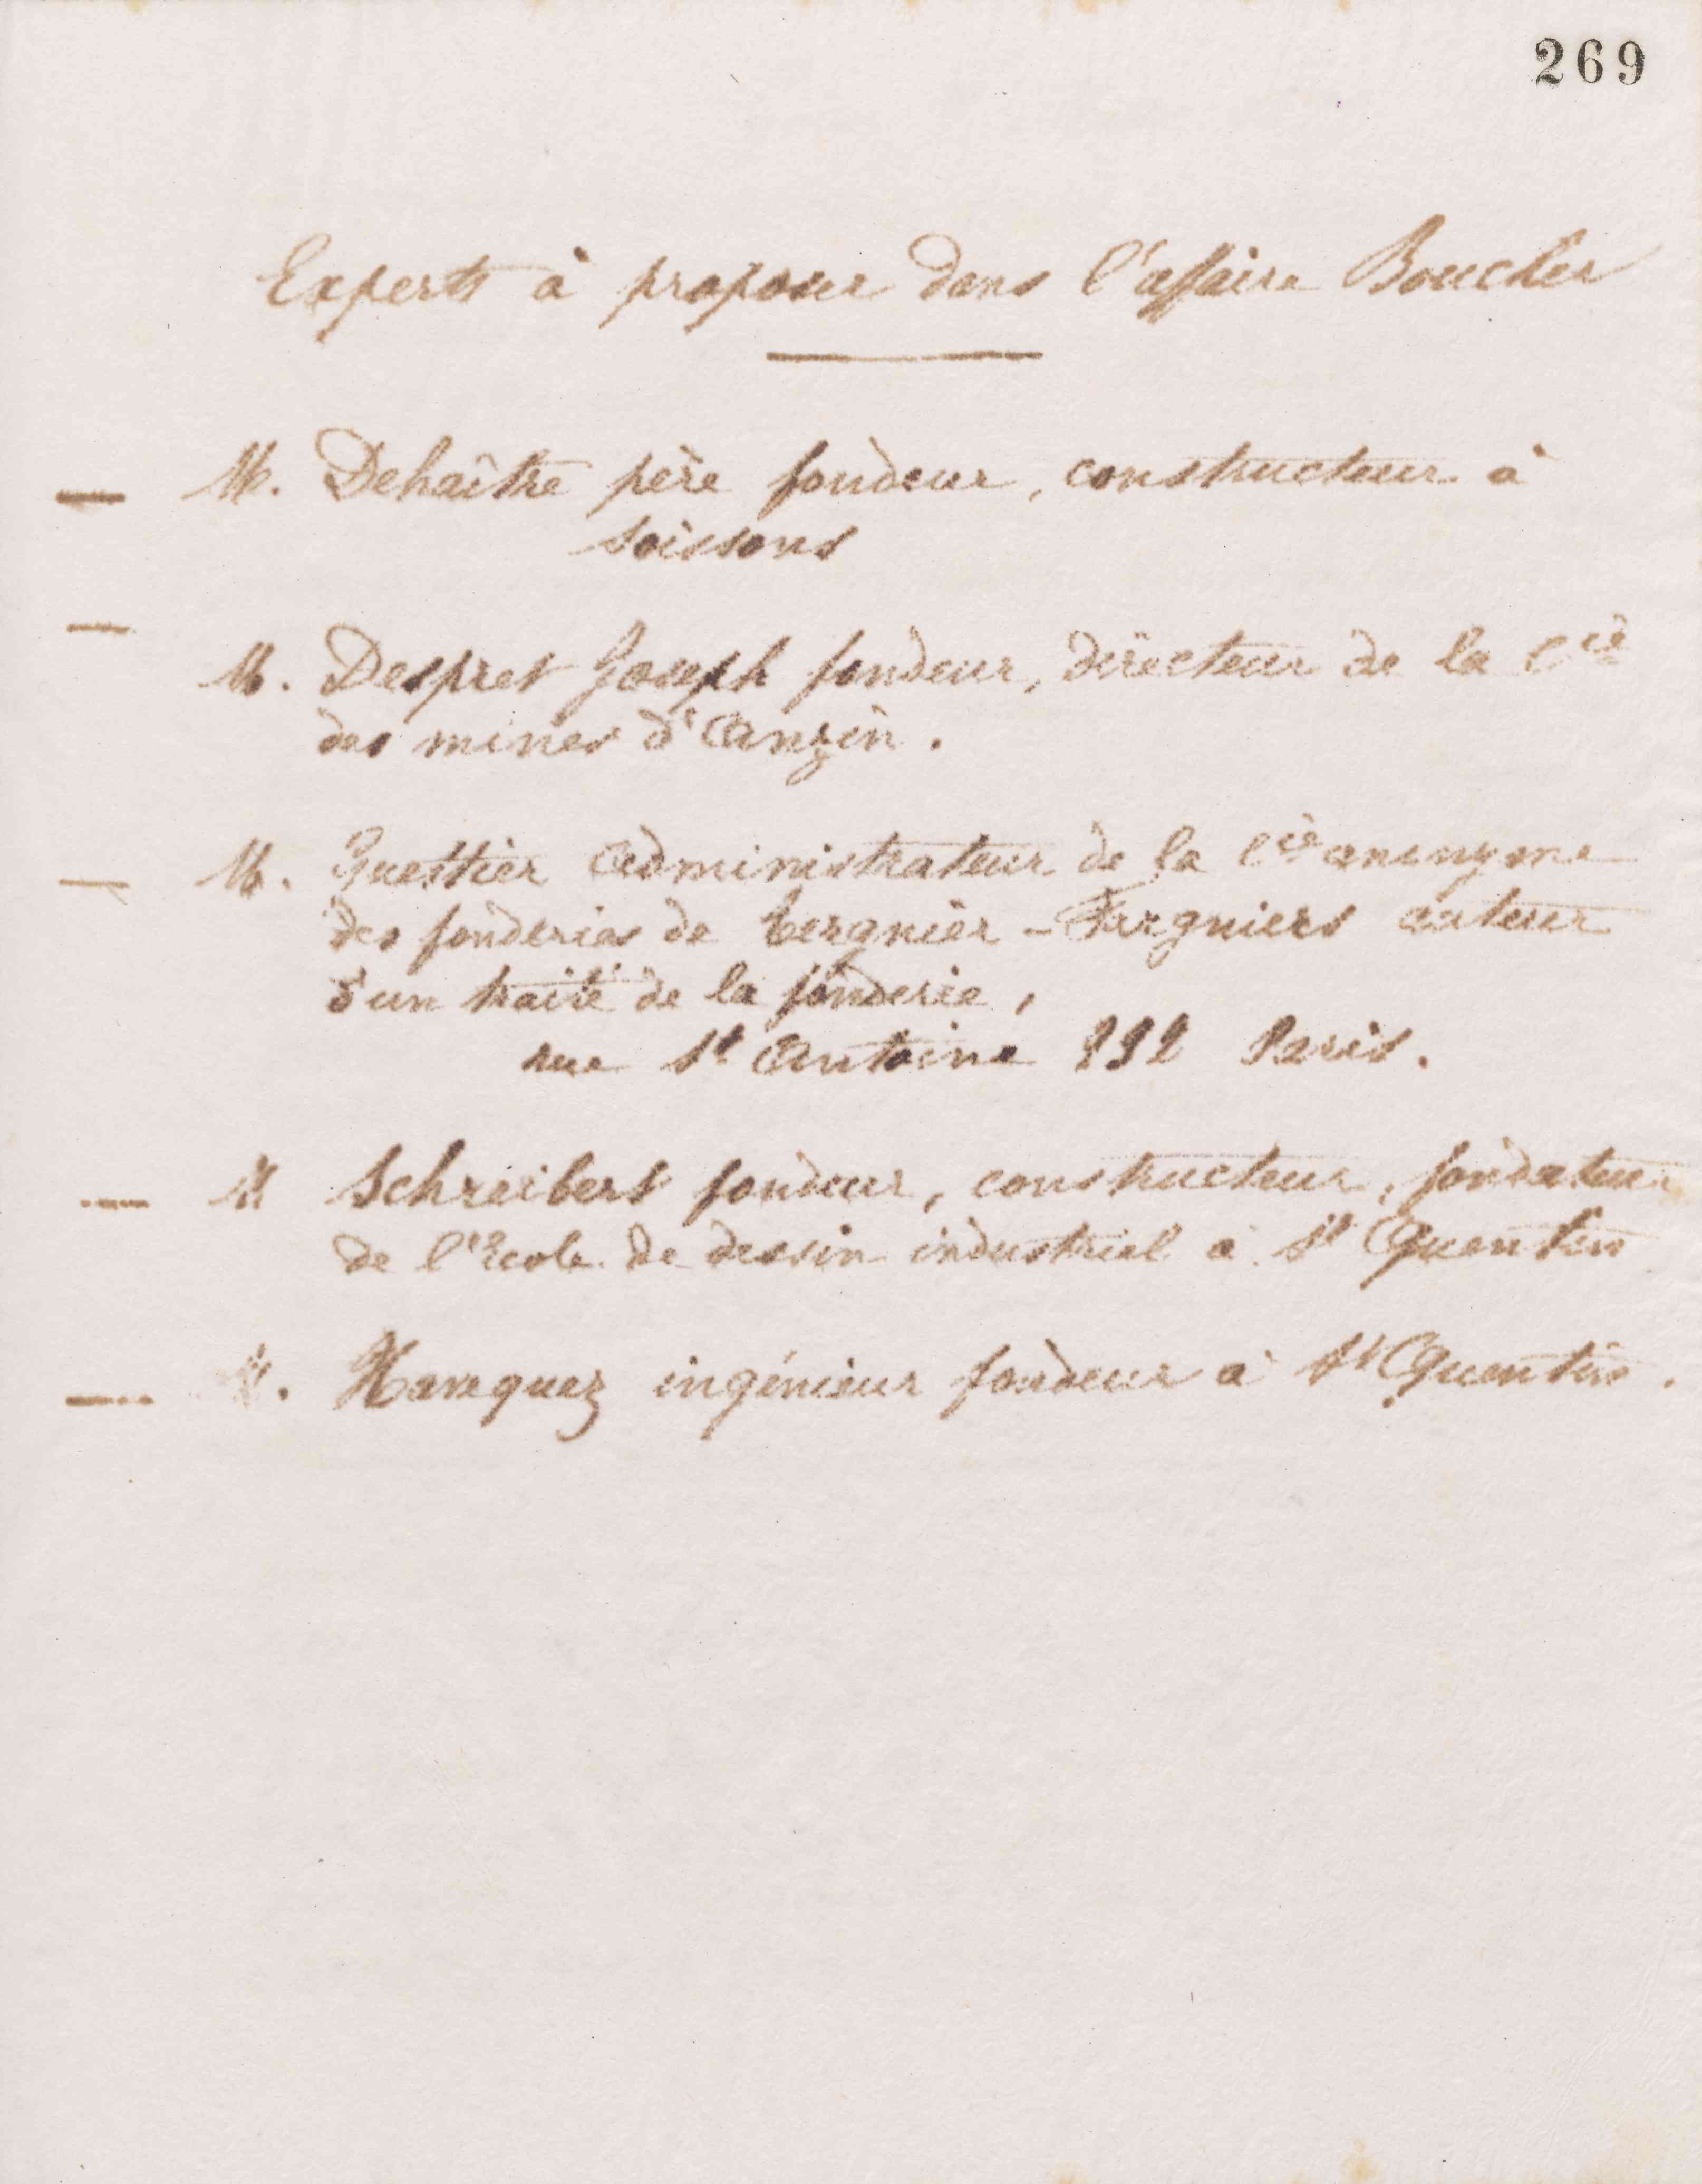 269
Experts à proposer dans l'affaire Boucher
— M. Dehaître père fondeur, constructeur à
Soissons
— M. Despret Joseph fondeur, directeur de la Cie
des mines d'Anzin.
— M. Guettier Administrateur de la Cie anonyme
des fonderies de Tergnier - Fargniers auteur
d'un traité de la fonderie,
rue St Antoine 212 Paris.
— M Schreibert fondeur, constructeur, fondateur
de l'Ecole de dessin industriel à St Quentin
— M. ingénieur fondeur à St Quentin.